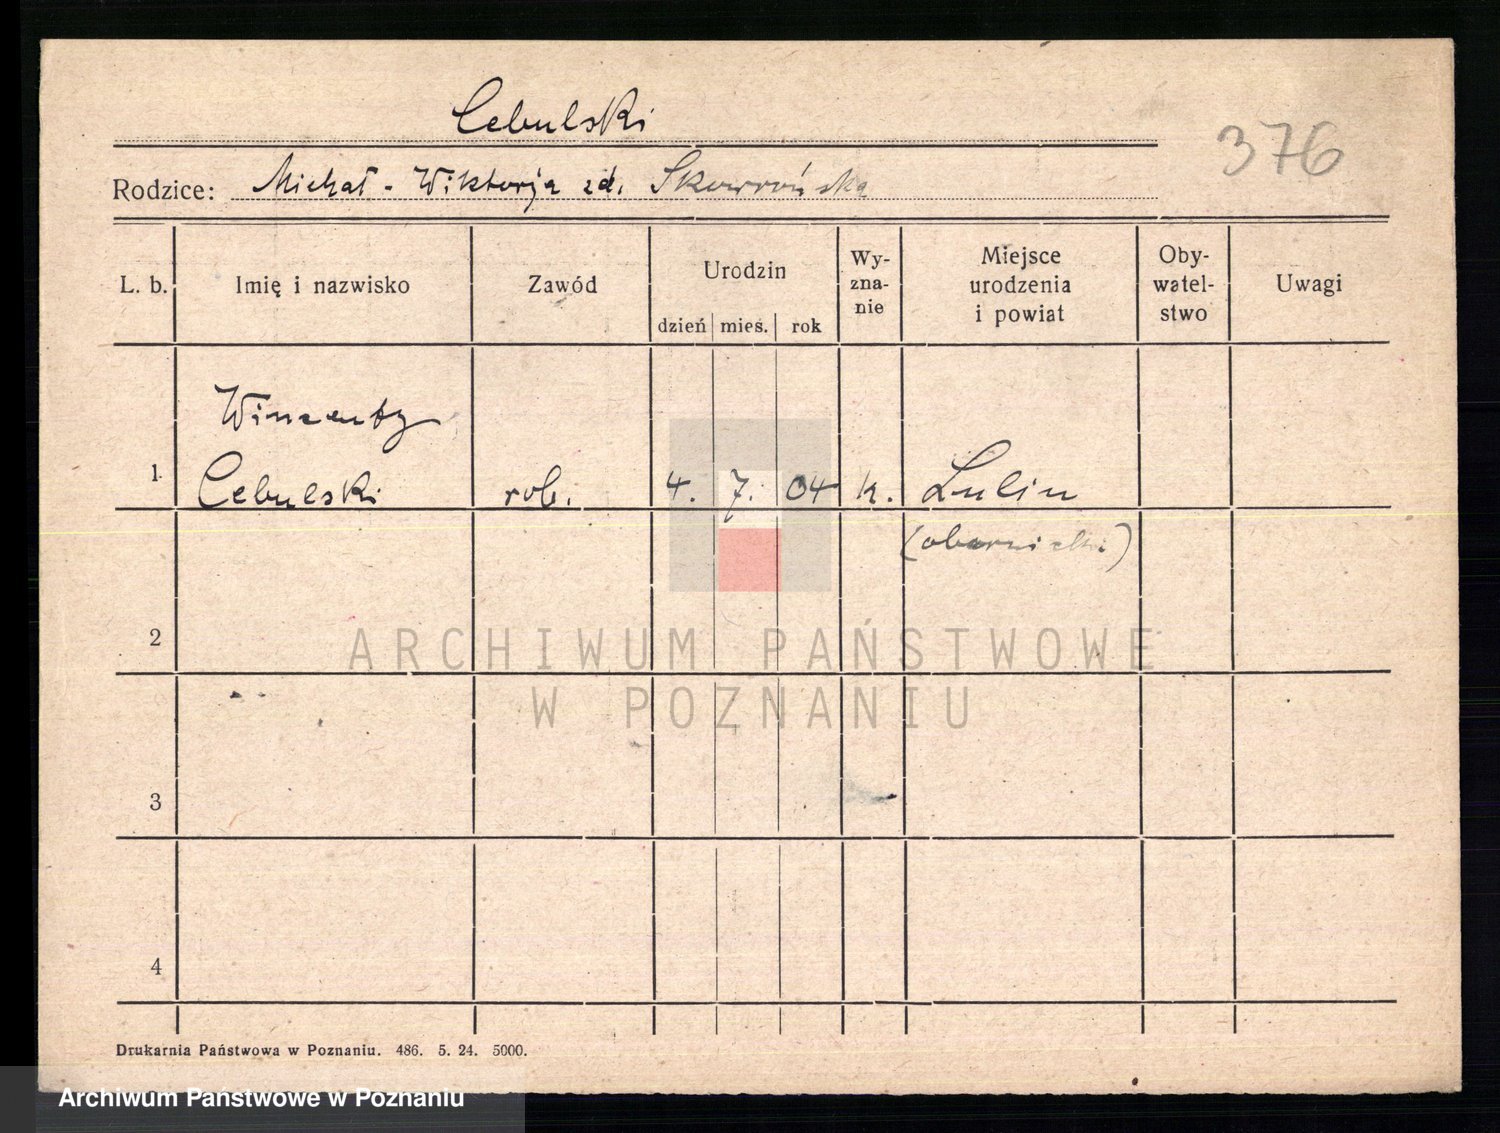 Cebulski
376
Rodzice: Michał - Wiktorja zd. Skowrońska
L. b. Imię i nazwisko Zawód Urodzin dzień mies. rok Wy-zna-nie Miejsce urodzenia i powiat Oby-watel-stwo Uwagi
Wincenty
1 Cebulski rob. 4. 7. 04 k. Lulin
(obornicki)
2
ARCHIWUM PAŃSTWOWE
W POZNANIU
3
4
Drukarnia Państwowa w Poznaniu. 486. 5. 24. 5000.
Archiwum Państwowe w Poznaniu